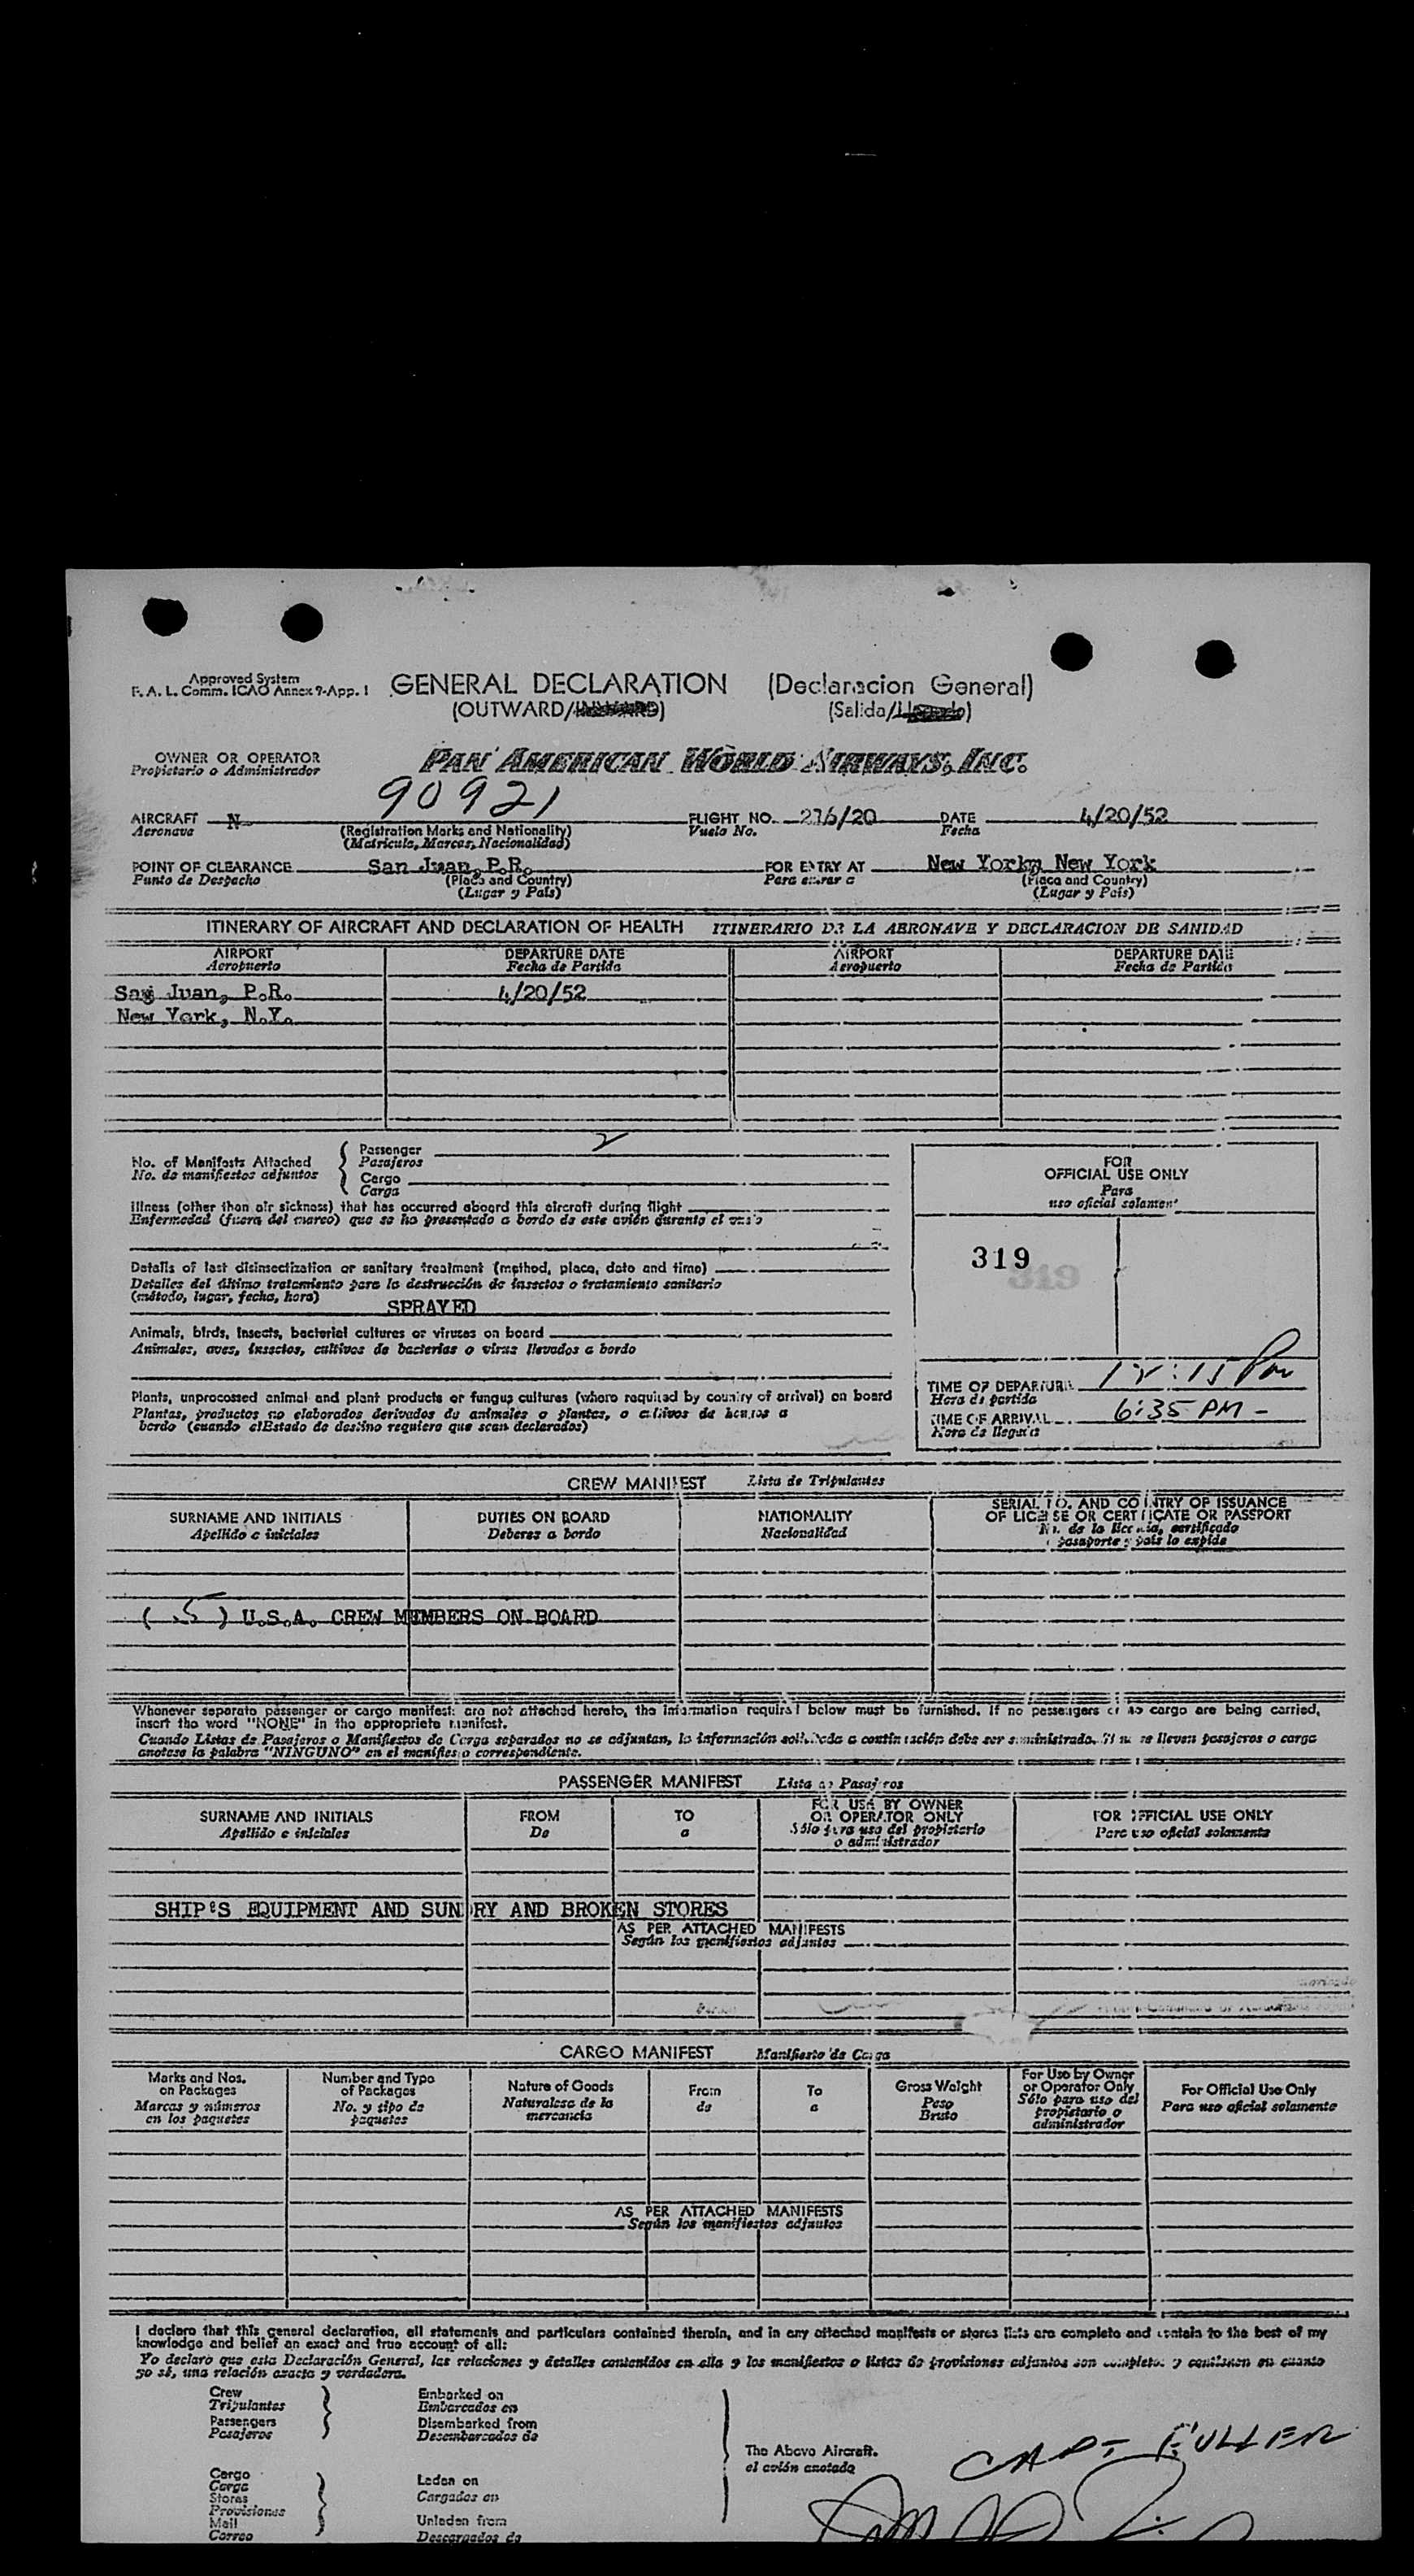 Approved System
F. A. L. Comm. ICAO Annex 9-App. 1
GENERAL DECLARATION (Declaracion General)
(OUTWARD/INWARD) (Salida/Llegada)
OWNER OR OPERATOR PAN AMERICAN WORLD AIRWAYS, INC.
Propietario o Administrador
90921
AIRCRAFT N FLIGHT NO. 276/20 DATE 4/20/52
Aeronave (Registration Marks and Nationality) Vuelo No. Fecha
(Matricula, Marcas, Nacionalidad)
POINT OF CLEARANCE San Juan, P.R. FOR ENTRY AT New York, New York
Punto de Despacho (Place and Country) Para entrar a (Place and Country)
(Lugar y País) (Lugar y País)
ITINERARY OF AIRCRAFT AND DECLARATION OF HEALTH ITINERARIO DE LA AERONAVE Y DECLARACION DE SANIDAD
AIRPORT DEPARTURE DATE AIRPORT DEPARTURE DATE
Aeropuerto Fecha de Partida Aeropuerto Fecha de Partida
San Juan, P.R. 4/20/52
New York, N.Y.
No. of Manifests Attached Passenger 2
No. de manifiestos adjuntos Pasajeros
Cargo
Carga
Illness (other than air sickness) that has occurred aboard this aircraft during flight
Enfermedad (fuera del mareo) que se ha presentado a bordo de este avión durante el vuelo
Details of last disinsectization or sanitary treatment (method, place, date and time)
Detalles del último tratamiento para la destrucción de insectos o tratamiento sanitario
(método, lugar, fecha, hora)
SPRAYED
Animals, birds, insects, bacterial cultures or viruses on board
Animales, aves, insectos, cultivos de bacterias o virus llevados a bordo
Plants, unprocessed animal and plant products or fungus cultures (where required by country of arrival) on board
Plantas, productos no elaborados derivados de animales o plantas, o cultivos de hongos a
bordo (cuando elEstado de destino requiere que sean declarados)
FOR
OFFICIAL USE ONLY
Para
uso oficial solament
319
319
TIME OF DEPARTURE 12:15 Pm
Hora de partida
TIME OF ARRIVAL 6:35 PM -
Hora de llegada
CREW MANIFEST Lista de Tripulantes
SURNAME AND INITIALS DUTIES ON BOARD NATIONALITY SERIAL NO. AND COUNTRY OF ISSUANCE
Apellido e iniciales Deberes a bordo Nacionalidad OF LICENSE OR CERTIFICATE OR PASSPORT
No. de la licencia, certificado
o pasaporte y país lo expide
( 5 ) U.S.A. CREW MEMBERS ON BOARD
Whenever separate passenger or cargo manifests are not attached hereto, the information required below must be furnished. If no passengers or no cargo are being carried,
insert the word "NONE" in the appropriate manifest.
Cuando Listas de Pasajeros o Manifiestos de Carga separados no se adjuntan, la información solicitada a continuación debe ser suministrada. Si no se lleven pasajeros o carga
anotese la palabra "NINGUNO" en el manifiesto correspondiente.
PASSENGER MANIFEST Lista de Pasajeros
SURNAME AND INITIALS FROM TO FOR USE BY OWNER FOR OFFICIAL USE ONLY
Apellido e iniciales De a OR OPERATOR ONLY Para uso oficial solamente
Sólo para uso del propietario
o administrador
SHIP'S EQUIPMENT AND SUNDRY AND BROKEN STORES
AS PER ATTACHED MANIFESTS
Según los manifiestos adjuntos
CARGO MANIFEST Manifiesto de Carga
Marks and Nos. Number and Type Nature of Goods From To Gross Weight For Use by Owner For Official Use Only
on Packages of Packages Naturaleza de la de a Peso or Operator Only Para uso oficial solamente
Marcas y números No. y tipo de mercancia Bruto Sólo para uso del
en los paquetes paquetes propietario o
administrador
AS PER ATTACHED MANIFESTS
Según los manifiestos adjuntos
I declare that this general declaration, all statements and particulars contained therein, and in any attached manifests or stores lists are complete and contain to the best of my
knowledge and belief an exact and true account of all:
Yo declaro que esta Declaración General, las relaciones y detalles contenidos en ella y los manifiestos o listas de provisiones adjuntos son completos y contienen en cuanto
yo sé, una relación exacta y verdadera.
Crew Embarked on
Tripulantes Embarcados en
Passengers Disembarked from
Pasajeros Desembarcados de
The Above Aircraft.
el avión anotado
CAPT FULLER
Cargo
Carga Laden on
Stores Cargados en
Provisiones
Mail Unladen from
Correo Descargados de